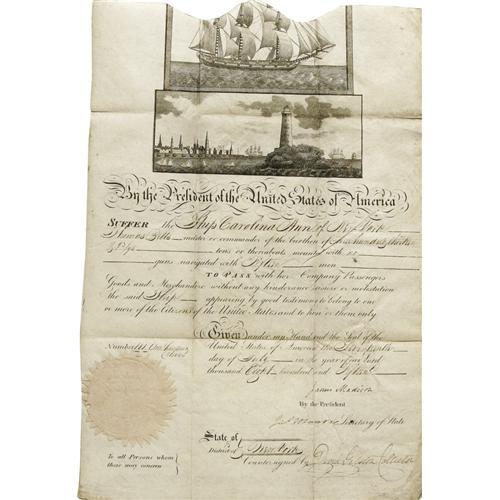 By the President of the United States of America
SUFFER the Ship Carolina Ann of New York
Thomas master or commander of the burthen of hundred
tons or thereabouts mounted with no
guns navigated with men
TO PASS with her Company Passengers
Goods and Merchandize without any hinderance seisure or molestation
the said Ship appearing by good testimony to belong to one
or more of the Citizens of the United States and to him or them only
Given under my Hand and the Seal of the
United States of America the
day of July in the year of our Lord
thousand Eight hundred and
James Madison
By the President
Jas Monroe Secretary of State
Number
State of
District of New York
Countersigned by David Gelston Collector
To all Persons whom
these may concern